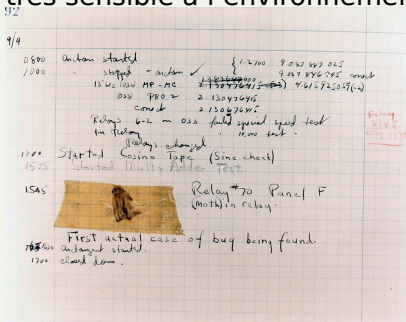 très sensible à l'environneme
92
9/9
0800 Antan started
1000 " stopped - antan ✓ { 1.2700 9.037 847 025
9.037 846 995 correct
13" uc (032) MP - MC 2.130476415 4.615925059(-2)
(033) PRO 2 2.130476415
correct 2.130676415
Relays 6-2 in 033 failed special speed test
in Relay " 10,000 test .
Relays changed
1700 Started Cosine Tape (Sine check)
1525 Started Multi Adder Test.
1545 Relay #70 Panel F
(moth) in relay.
First actual case of bug being found.
antangent started.
1700 closed down.
Relay